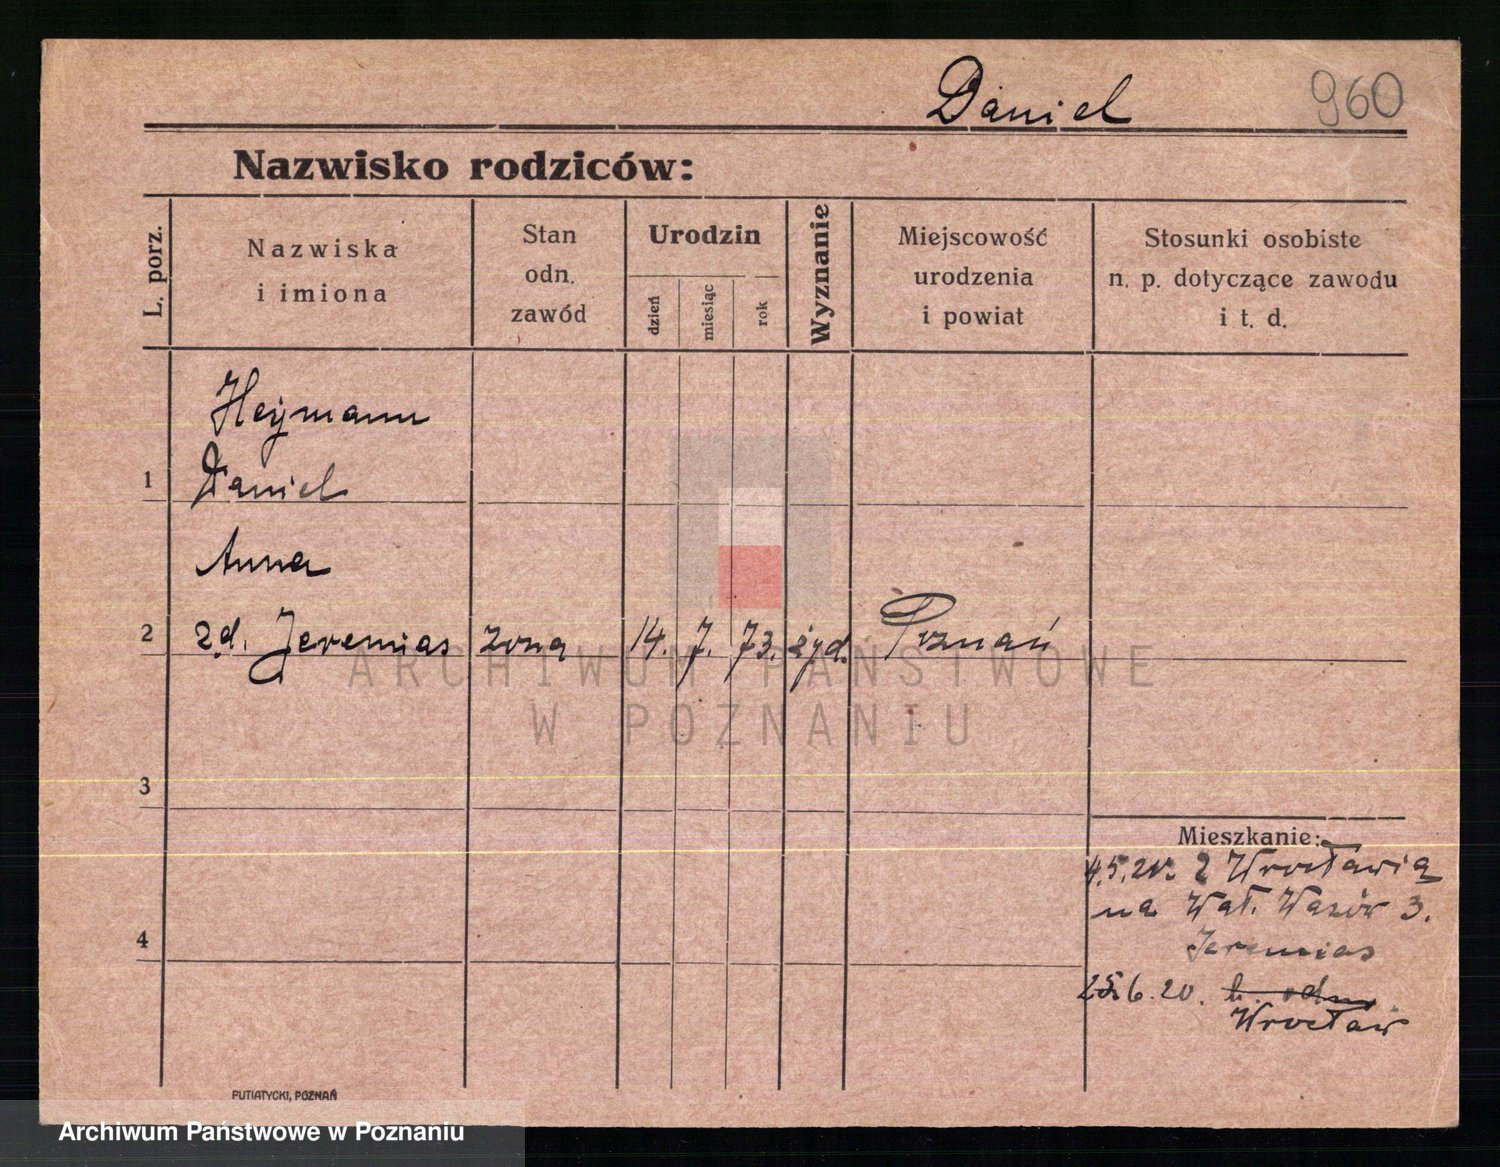 Daniel 960
Nazwisko rodziców:
L. porz.
Nazwiska
i imiona
Stan
odn.
zawód
Urodzin
dzień
miesiąc
rok
Wyznanie
Miejscowość
urodzenia
i powiat
Stosunki osobiste
n. p. dotyczące zawodu
i t. d.
Heymann
1 Daniel
Anna
2 z d. Jeremias żona 14. 7. 73. żyd. Poznań
ARCHIWUM PAŃSTWOWE
W POZNANIU
3
Mieszkanie:
4.5.20. z Wrocławia
na Wał. Wazów 3.
4
Jeremias
25.6.20. b. odm.
Wrocław
PUTIATYCKI, POZNAŃ
Archiwum Państwowe w Poznaniu